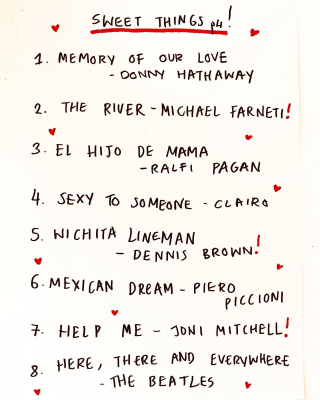 SWEET THINGS p4!
1. MEMORY OF OUR LOVE
- DONNY HATHAWAY
2. THE RIVER - MICHAEL FARNETI!
3. EL HIJO DE MAMA
- RALFI PAGAN
4. SEXY TO SOMEONE - CLAIRO
5. WICHITA LINEMAN
- DENNIS BROWN!
6. MEXICAN DREAM - PIERO
PICCIONI
7. HELP ME - JONI MITCHELL!
8. HERE, THERE AND EVERYWHERE
- THE BEATLES